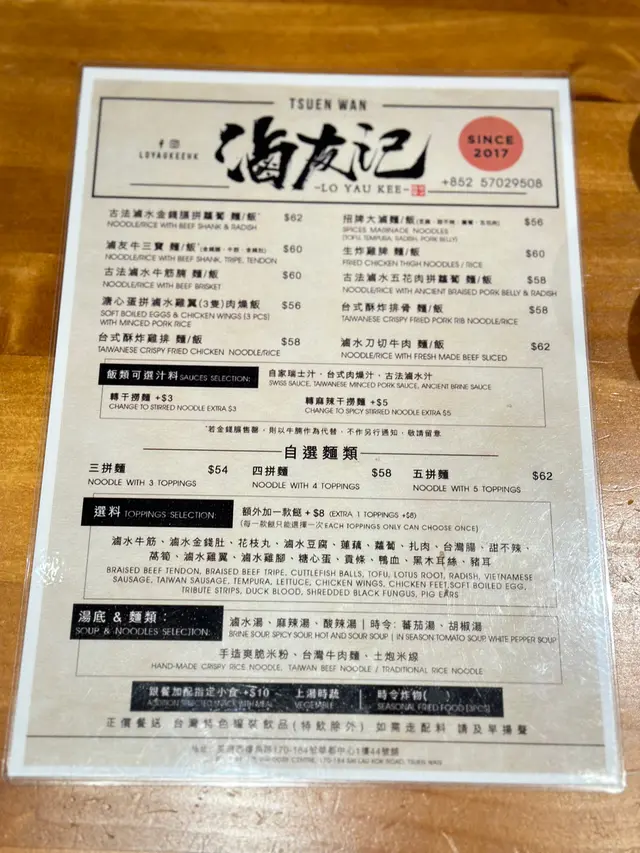 TSUEN WAN
LOYAUKEEHK
滷友记
-LO YAU KEE-
SINCE
2017
+852 57029508
古法滷水金錢𦟌拼蘿蔔 麵/飯* $62
NOODLE/RICE WITH BEEF SHANK & RADISH
滷友牛三寶 麵/飯*
$60
NOODLE/RICE WITH BEEF SHANK, TRIPE, TENDON
古法滷水牛筋腩 麵/飯 $60
NOODLE/RICE WITH BEEF BRISKET
溏心蛋拼滷水雞翼(3隻)肉燥飯 $56
SOFT BOILED EGGS & CHICKEN WINGS (3 PCS)
WITH MINCED PORK RICE
台式酥炸雞排 麵/飯 $58
TAIWANESE CRISPY FRIED CHICKEN NOODLE/RICE
招牌大滷麵/飯 $56
SPICES MARINADE NOODLES
(TOFU, TEMPURA, RADISH, PORK BELLY)
生炸雞脾 麵/飯 $60
FRIED CHICKEN THIGH NOODLES / RICE
古法滷水五花肉拼蘿蔔 麵/飯 $58
NOODLE/RICE WITH ANCIENT BRAISED PORK BELLY & RADISH
台式酥炸排骨 麵/飯 $58
TAIWANESE CRISPY FRIED PORK RIB NOODLE/RICE
滷水刀切牛肉 麵/飯 $62
NOODLE/RICE WITH FRESH MADE BEEF SLICED
飯類可選汁料 SAUCES SELECTION:
自家瑞士汁、台式肉燥汁、古法滷水汁
SWISS SAUCE, TAIWANESE MINCED PORK SAUCE, ANCIENT BRINE SAUCE
轉干撈麵 +$3
CHANGE TO STIRRED NOODLE EXTRA $3
轉麻辣干撈麵 +$5
CHANGE TO SPICY STIRRED NOODLE EXTRA $5
*若金錢𦟌售罄，則以牛腩作為代替，不作另行通知，敬請留意
自選麵類
三拼麵 $54
NOODLE WITH 3 TOPPINGS
四拼麵 $58
NOODLE WITH 4 TOPPINGS
五拼麵 $62
NOODLE WITH 5 TOPPINGS
選料 TOPPINGS SELECTION:
額外加一款餸 + $8 (EXTRA 1 TOPPINGS +$8)
(每一款餸只能選擇一次 EACH TOPPINGS ONLY CAN CHOOSE ONCE)
滷水牛筋、滷水金錢肚、花枝丸、滷水豆腐、蓮藕、蘿蔔、扎肉、台灣腸、甜不辣、
萵筍、滷水雞翼、滷水雞腳、糖心蛋、貢條、鴨血、黑木耳絲、豬耳
BRAISED BEEF TENDON, BRAISED BEEF TRIPE, CUTTLEFISH BALLS, TOFU, LOTUS ROOT, RADISH, VIETNAMESE
SAUSAGE, TAIWAN SAUSAGE, TEMPURA, LETTUCE, CHICKEN WINGS, CHICKEN FEET,SOFT BOILED EGG,
TRIBUTE STRIPS, DUCK BLOOD, SHREDDED BLACK FUNGUS, PIG EARS
湯底 & 麵類：
SOUP & NOODLES SELECTION:
滷水湯、麻辣湯、酸辣湯 | 時令: 蕃茄湯、胡椒湯
BRINE SOUP, SPICY SOUP, HOT AND SOUR SOUP | IN SEASON TOMATO SOUP, WHITE PEPPER SOUP
手造爽脆米粉、台灣牛肉麵、土炮米線
HAND-MADE CRISPY RICE NOODLE, TAIWAN BEEF NOODLE / TRADITIONAL RICE NOODLE
跟餐加配指定小食 +$10
ADDITION SELECTED SNACK WITH MEAL
上湯時蔬
VEGETABLE
時令炸物( )
SEASONAL FRIED FOOD
正價餐送 台灣特色罐裝飲品(特飲除外) 如需走配料 請及早揚聲
170-184 44號舖
170-184 SAI LAU KOK ROAD, TSUEN WAN